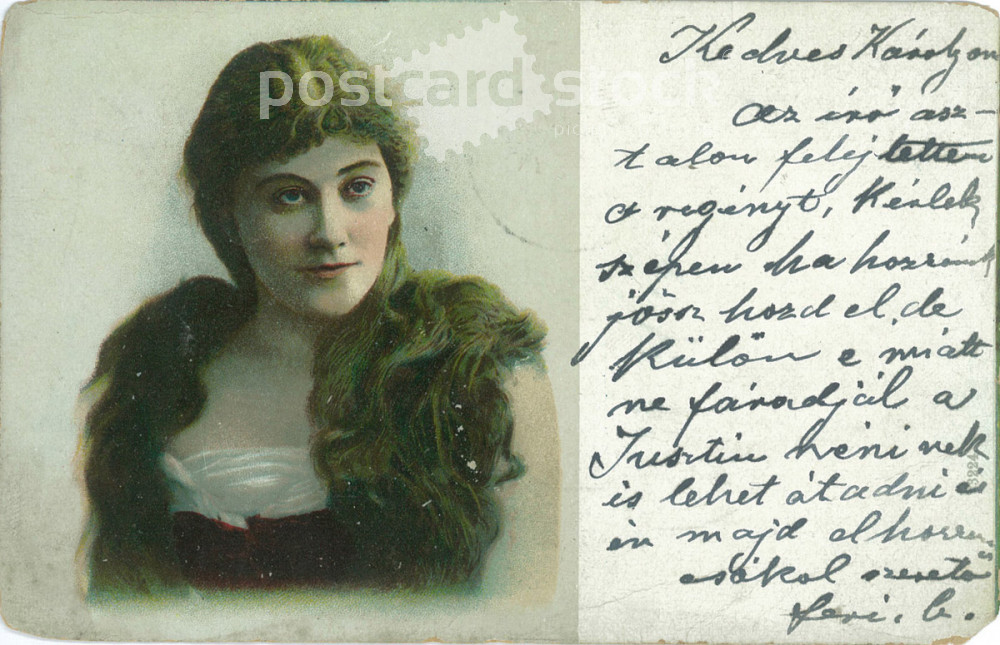 postcard stock
pic
Kedves Károlyom
az író asz-
talon felejtettem
a regényt, Kérlek
szépen ha hozzánk
jössz hozd el, de
külön e miatt
ne fáradjál a
Jusztin néninek
is lehet átadni és
én majd elhozom
csókol szerető
feri. b.